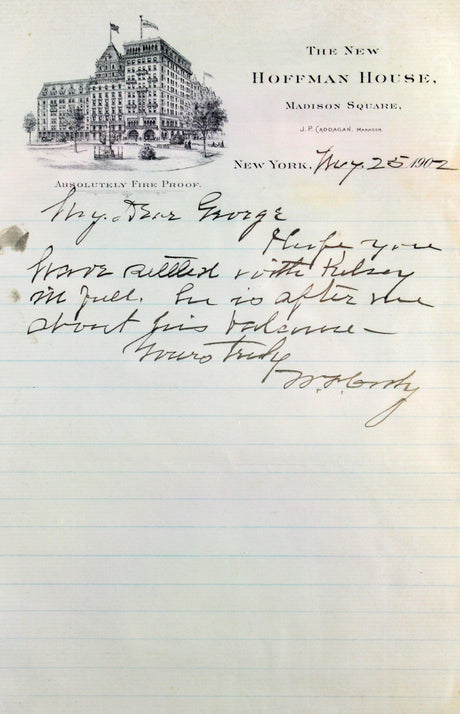 The New
Hoffman House,
Madison Square,
J. P. Caddagan, Manager
New York, 25 1902
Absolutely Fire Proof.
My Dear George
I hope you
have settled with Kelsey
in full. he is after me
about his balance—
Yours truly
W. F. Cody